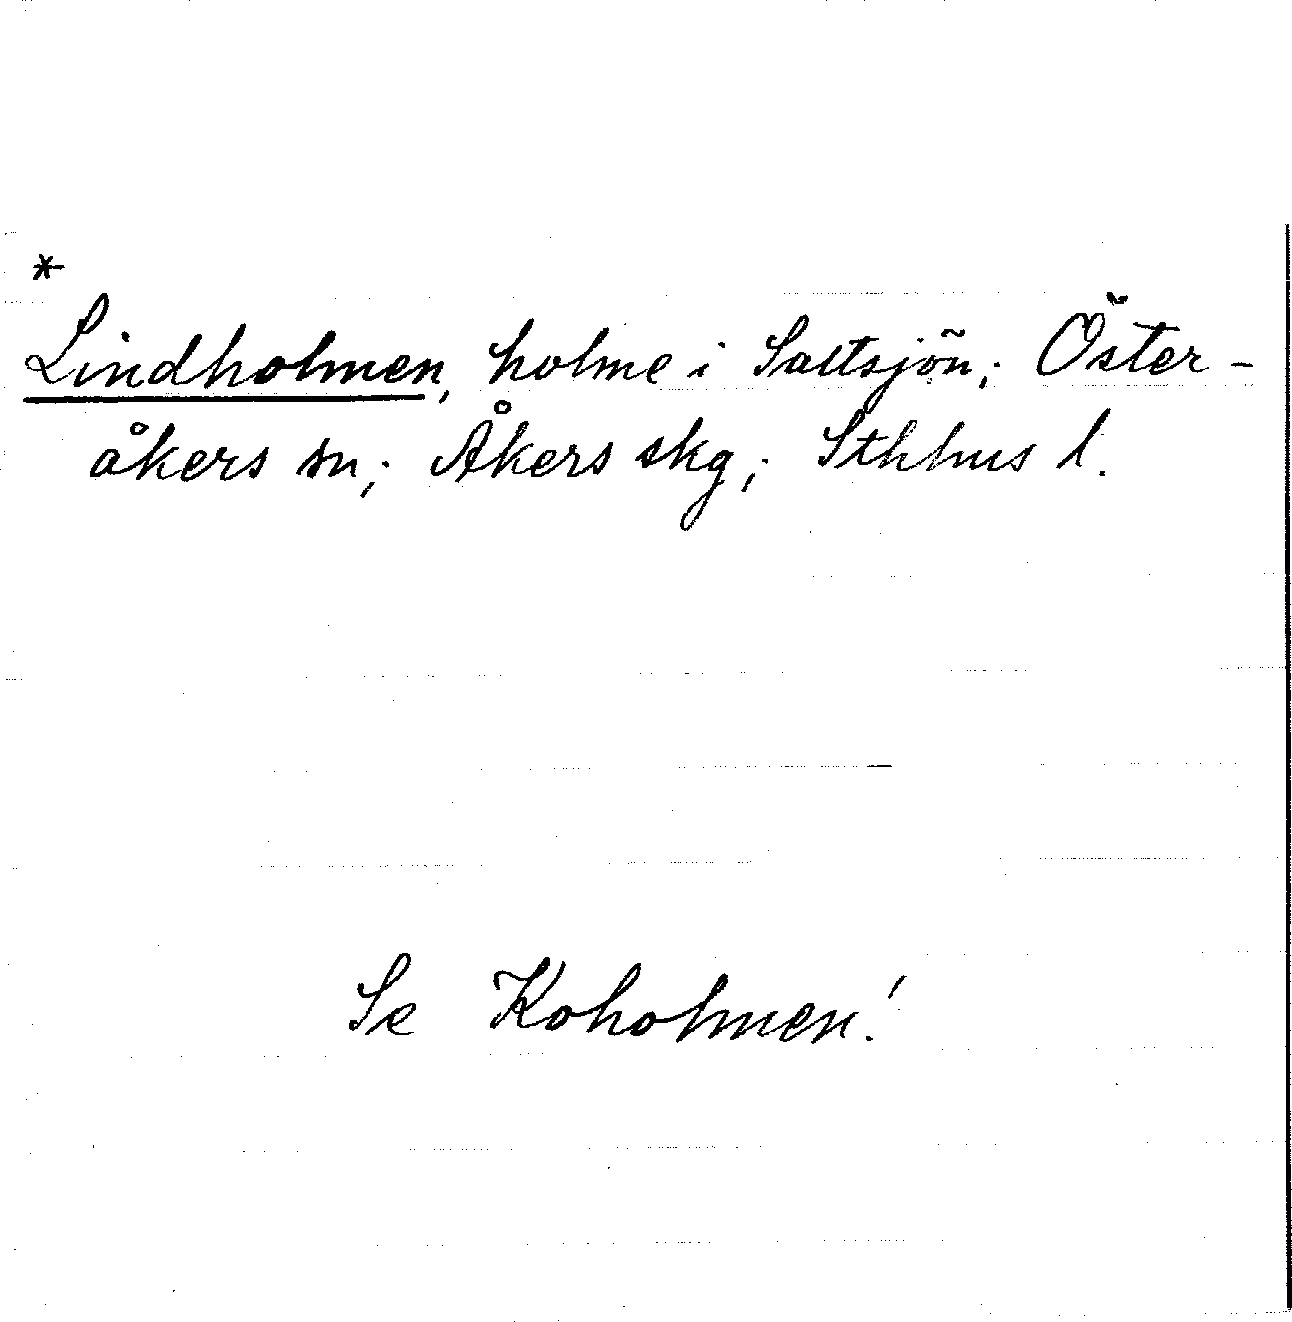 *
Lindholmen, holme i Saltsjön; Öster-
åkers sn; Åkers skg; Sthlms l.
Se Koholmen!